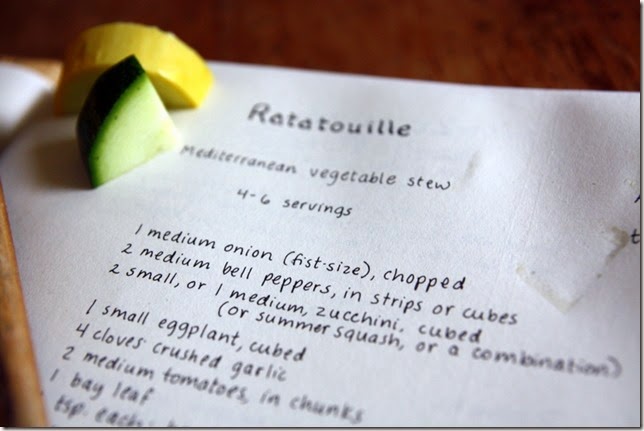 Ratatouille
Mediterranean vegetable stew
4-6 servings
1 medium onion (fist-size), chopped
2 medium bell peppers, in strips or cubes
2 small, or 1 medium, zucchini, cubed
(or summer squash, or a combination)
1 small eggplant, cubed
4 cloves crushed garlic
2 medium tomatoes, in chunks
1 bay leaf
tsp. each: